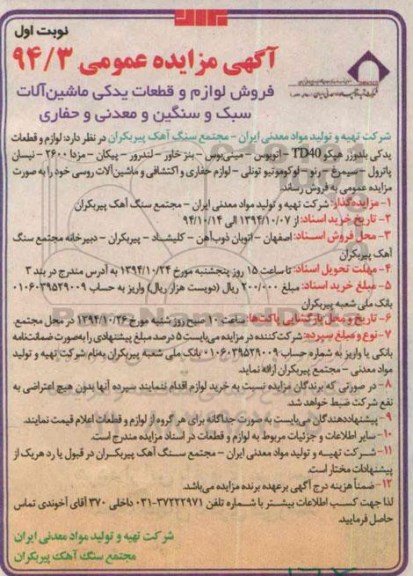 نوبت اول
آگهی مزایده عمومی ۹۴/۳
فروش لوازم و قطعات یدکی ماشین‌آلات
سبک و سنگین و معدنی و حفاری
شرکت تهیه و تولید مواد معدنی ایران - مجتمع سنگ آهک پیربکران در نظر دارد: لوازم و قطعات
یدکی بلدوزر هپکو TD40 - اتوبوس - مینی‌بوس - بنز خاور - لندرور - پیکان - مزدا ۲۶۰۰ - نیسان
پاترول - سیمرغ - رنو - لوکوموتیو تونلی - لوازم حفاری و اکتشافی و ماشین‌آلات روسی خود را به صورت
مزایده عمومی به فروش رساند.
۱- مزایده‌گذار: شرکت تهیه و تولید مواد معدنی ایران - مجتمع سنگ آهک پیربکران
۲- تاریخ خرید اسناد: از ۱۳۹۴/۱۰/۰۷ الی ۹۴/۱۰/۱۴
۳- محل فروش اسناد: اصفهان - اتوبان ذوب‌آهن - کلیشاد - پیربکران - دبیرخانه مجتمع سنگ
آهک پیربکران
۴- مهلت تحویل اسناد: تا ساعت ۱۵ روز پنجشنبه مورخ ۱۳۹۴/۱۰/۲۴ به آدرس مندرج در بند ۳
۵- مبلغ خرید اسناد: مبلغ ۲۰۰/۰۰۰ ریال (دویست هزار ریال) واریز به حساب ۰۱۰۶۰۳۹۵۲۹۰۰۹
بانک ملی شعبه پیربکران
۶- تاریخ و محل بازگشایی پاکت‌ها: ساعت ۱۰ صبح روز شنبه مورخ ۱۳۹۴/۱۰/۲۶ در محل مجتمع.
۷- نوع و مبلغ سپرده: شرکت‌کننده در مزایده می‌بایست ۵ درصد مبلغ پیشنهادی را به‌صورت ضمانت‌نامه
بانکی یا واریز به شماره حساب ۰۱۰۶۰۳۹۵۲۹۰۰۹ بانک ملی شعبه پیربکران به‌نام شرکت تهیه و تولید
مواد معدنی - مجتمع پیربکران ارائه نماید.
۸- در صورتی که برندگان مزایده نسبت به خرید لوازم اقدام ننمایند سپرده آنها بدون هیچ اعتراضی به
نفع شرکت ضبط خواهد شد.
۹- پیشنهاددهندگان می‌بایست به صورت جداگانه برای هر گروه از لوازم و قطعات اعلام قیمت نمایند.
۱۰- سایر اطلاعات و جزئیات مربوط به لوازم و قطعات در اسناد مزایده مندرج است.
۱۱- شرکت تهیه و تولید مواد معدنی ایران - مجتمع سنگ آهک پیربکران در قبول یا رد هریک از
پیشنهادات مختار است.
۱۲- ضمناً هزینه درج آگهی برعهده برنده مزایده می‌باشد.
لذا جهت کسب اطلاعات بیشتر با شماره تلفن ۳۷۲۲۲۹۷۱-۰۳۱ داخلی ۳۷۰ آقای آخوندی تماس
حاصل فرمایید.
شرکت تهیه و تولید مواد معدنی ایران
مجتمع سنگ آهک پیربکران